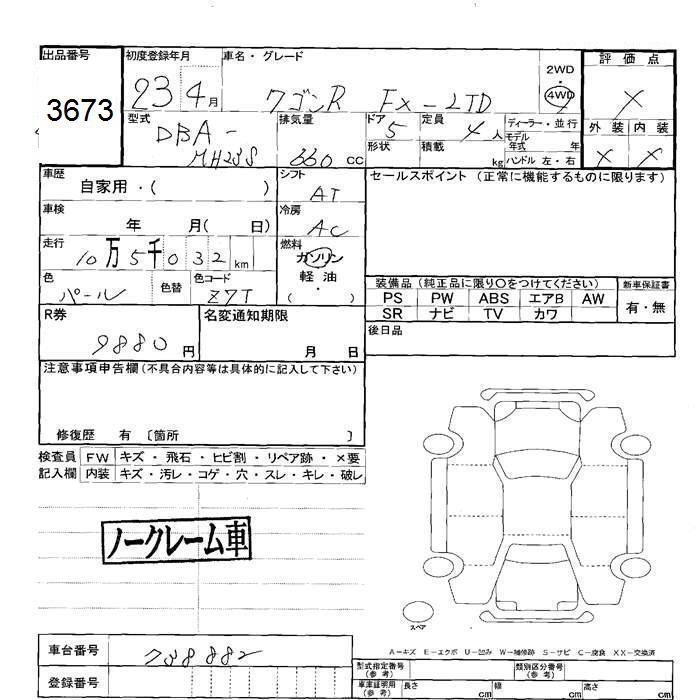 出品番号
3673
初度登録年月
23 4月
車名・グレード
ワゴンR FX-LTD
2WD
・
4WD
評価点
X
外装 内装
X X
型式
DBA-
MH23S
排気量
660 cc
ドア 5
形状
定員 4 人
積載 kg
ディーラー・並行
モデル
年式 年
ハンドル 左・右
車歴
自家用・( )
シフト
AT
車検
年 月( 日)
冷房
AC
走行
10万5千032km
燃料
ガソリン
軽油
・
( )
色
パール
色替
色コード
Z7T
セールスポイント (正常に機能するものに限ります)
装備品 (純正品に限り〇をつけてください)
PS PW ABS エアB AW
SR ナビ TV カワ
新車保証書
有・無
後日品
R券
9880円
名変通知期限
月 日
注意事項申告欄(不具合内容等は具体的に記入して下さい)
修復歴 有 〔箇所 〕
検査員
記入欄
FW キズ・飛石・ヒビ割・リペア跡・×要
内装 キズ・汚レ・コゲ・穴・スレ・キレ・破レ
ノークレーム車
スペア
A-キズ E-エクボ U-凹み W-補修跡 S-サビ C-腐食 XX-交換済
車台番号
738882
登録番号
型式指定番号
(参考)
類別区分番号
(参考)
車庫証明用
(参考)
長さ cm
幅 cm
高さ cm